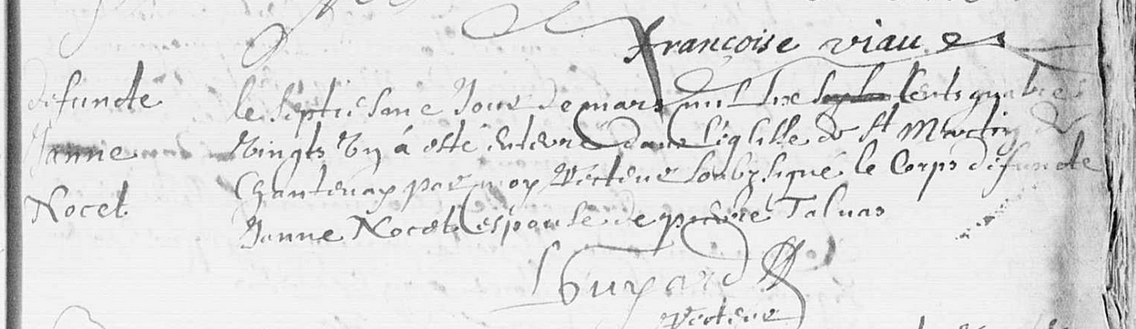 françoise viau
defuncte
Janne
Nocet
le septiesme Jour de mars mil six cents quatre
Vingts Un a esté enterré dans l'églisse de St Martin de
Chantenay par moy Recteur soubzsigné le Corps defuncte
Janne Nocet espouse de pierre Taluas
Recteur